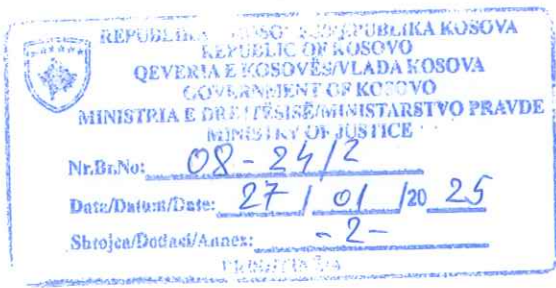 REPUBLIKA KOSOVA
REPUBLIC OF KOSOVO
QEVERIA E KOSOVËS/VLADA KOSOVA
GOVERNMENT OF KOSOVO
MINISTRIA E DREJTËSISË/MINISTARSTVO PRAVDE
MINISTRY OF JUSTICE
Nr.Br.No: 08-24/2
Data/Datum/Date: 27 / 01 /20 25
Shtojca/Dodaci/Annex: -2-